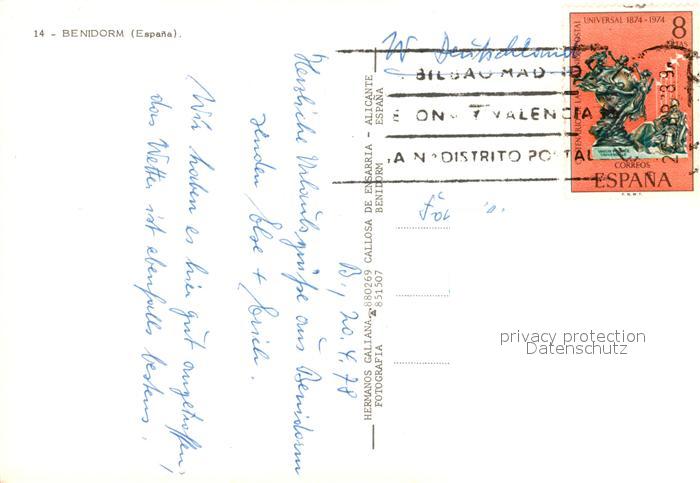 14 - BENIDORM (España).
B., 20.4.78
Herzliche Urlaubsgrüße aus Benidorm
senden Else + Erich.
Wir haben es hier gut angetroffen,
das Wetter ist ebenfalls bestens.
HERMANOS GALIANA 880269 CALLOSA DE ENSARRIA - ALICANTE
FOTOGRAFIA 851507 BENIDORM ESPAÑA
W Deutschland
BILBAO MAD
ON Y VALENCIA
DISTRITO POSTAL
UNIVERSAL 1874-1974
8
PTAS
CORREOS
ESPAÑA
Fa.
privacy protection
Datenschutz